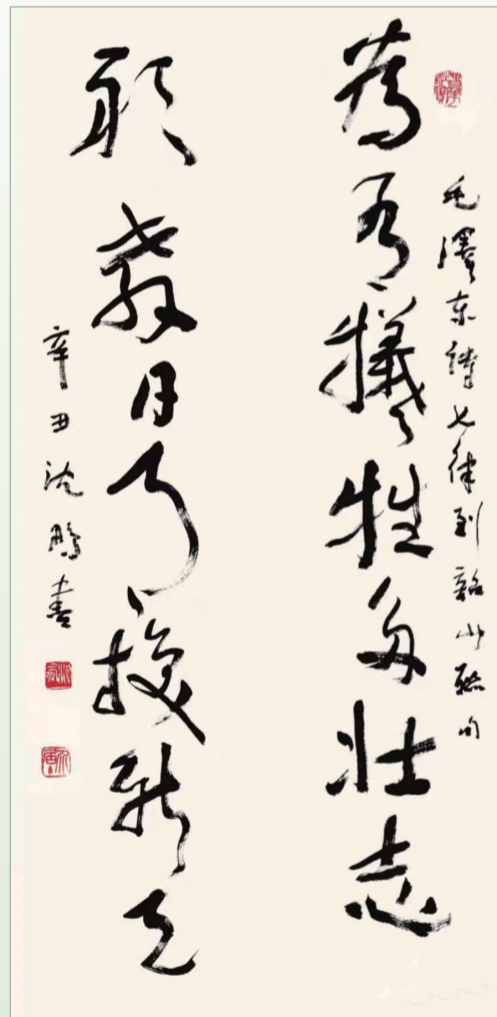 毛澤东詩七律到韶山聯句
為有犧牲多壮志
敢教日月換新天
辛丑沈鵬書